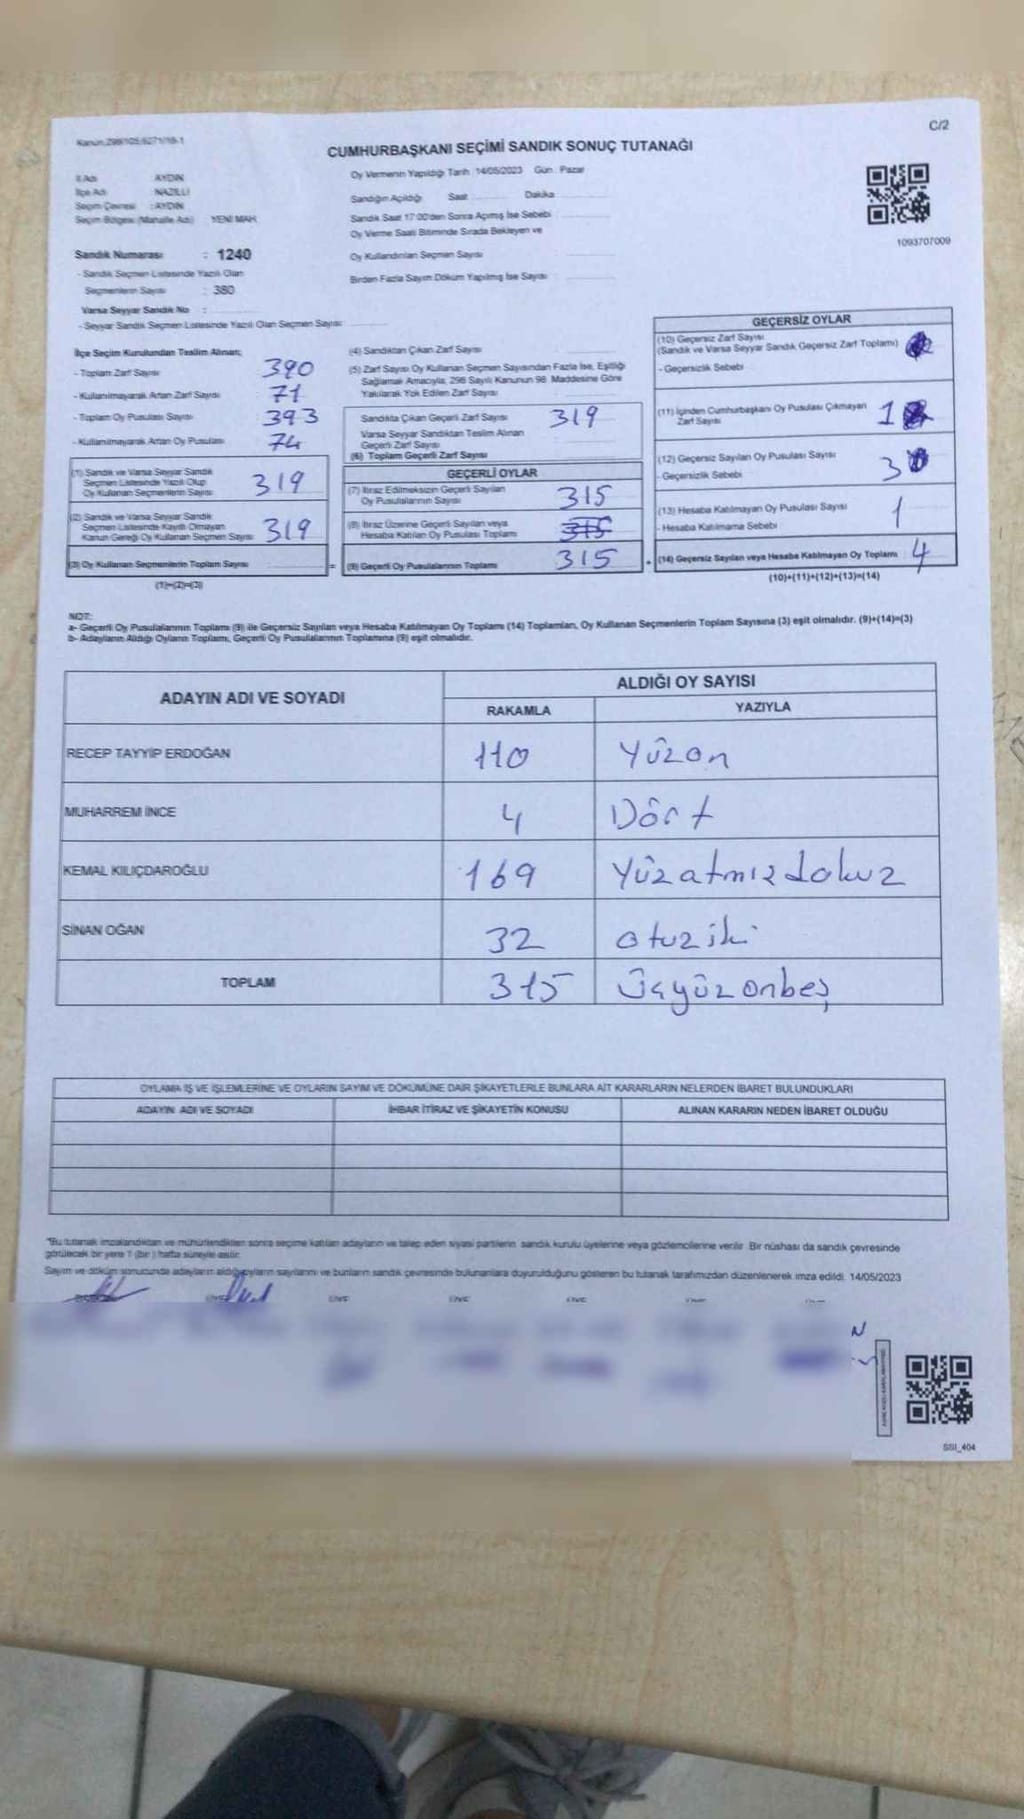 C/2
Kanun:298/105;6271/18-1
CUMHURBAŞKANI SEÇİMİ SANDIK SONUÇ TUTANAĞI
İl Adı AYDIN
İlçe Adı NAZİLLİ
Seçim Çevresi :AYDIN
Seçim Bölgesi (Mahalle Adı) YENİ MAH.
Sandık Numarası : 1240
- Sandık Seçmen Listesinde Yazılı Olan
Seçmenlerin Sayısı : 380
Varsa Seyyar Sandık No :
- Seyyar Sandık Seçmen Listesinde Yazılı Olan Seçmen Sayısı:
Oy Vermenin Yapıldığı Tarih :14/05/2023 Gün : Pazar
Sandığın Açıldığı Saat Dakika
Sandık Saat 17:00'den Sonra Açılmış İse Sebebi
Oy Verme Saati Bitiminde Sırada Bekleyen ve
Oy Kullandırılan Seçmen Sayısı
Birden Fazla Sayım Döküm Yapılmış İse Sayısı :
1093707009
İlçe Seçim Kurulundan Teslim Alınan;
- Toplam Zarf Sayısı 390
- Kullanılmayarak Artan Zarf Sayısı 71
- Toplam Oy Pusulası Sayısı 393
- Kullanılmayarak Artan Oy Pusulası 74
(1) Sandık ve Varsa Seyyar Sandık
Seçmen Listesinde Yazılı Olup
Oy Kullanan Seçmenlerin Sayısı 319
(2) Sandık ve Varsa Seyyar Sandık
Seçmen Listesinde Kayıtlı Olmayan
Kanun Gereği Oy Kullanan Seçmen Sayısı 319
(3) Oy Kullanan Seçmenlerin Toplam Sayısı =
(1)+(2)=(3)
(4) Sandıktan Çıkan Zarf Sayısı
(5) Zarf Sayısı Oy Kullanan Seçmen Sayısından Fazla İse, Eşitliği
Sağlamak Amacıyla, 298 Sayılı Kanunun 98. Maddesine Göre
Yakılarak Yok Edilen Zarf Sayısı
Sandıkta Çıkan Geçerli Zarf Sayısı 319
Varsa Seyyar Sandıktan Teslim Alınan
Geçerli Zarf Sayısı
(6) Toplam Geçerli Zarf Sayısı
GEÇERLİ OYLAR
(7) İtiraz Edilmeksizin Geçerli Sayılan
Oy Pusulalarının Sayısı 315
(8) İtiraz Üzerine Geçerli Sayılan veya
Hesaba Katılan Oy Pusulası Toplamı 315
(9) Geçerli Oy Pusulalarının Toplamı 315 +
GEÇERSİZ OYLAR
(10) Geçersiz Zarf Sayısı
(Sandık ve Varsa Seyyar Sandık Geçersiz Zarf Toplamı)
- Geçersizlik Sebebi
(11) İçinden Cumhurbaşkanı Oy Pusulası Çıkmayan
Zarf Sayısı 1
(12) Geçersiz Sayılan Oy Pusulası Sayısı
- Geçersizlik Sebebi 3
(13) Hesaba Katılmayan Oy Pusulası Sayısı
- Hesaba Katılmama Sebebi 1
(14) Geçersiz Sayılan veya Hesaba Katılmayan Oy Toplamı 4
(10)+(11)+(12)+(13)=(14)
NOT:
a- Geçerli Oy Pusulalarının Toplamı (9) ile Geçersiz Sayılan veya Hesaba Katılmayan Oy Toplamı (14) Toplamları, Oy Kullanan Seçmenlerin Toplam Sayısına (3) eşit olmalıdır. (9)+(14)=(3)
b- Adayların Aldığı Oyların Toplamı, Geçerli Oy Pusulalarının Toplamına (9) eşit olmalıdır.
ADAYIN ADI VE SOYADI ALDIĞI OY SAYISI
RAKAMLA YAZIYLA
RECEP TAYYİP ERDOĞAN 110 Yüzon
MUHARREM İNCE 4 Dört
KEMAL KILIÇDAROĞLU 169 Yüzatmızdokuz
SİNAN OĞAN 32 otuziki
TOPLAM 315 Üçyüzonbeş
OYLAMA İŞ VE İŞLEMLERİNE VE OYLARIN SAYIM VE DÖKÜMÜNE DAİR ŞİKAYETLERLE BUNLARA AİT KARARLARIN NELERDEN İBARET BULUNDUKLARI
ADAYIN ADI VE SOYADI İHBAR İTİRAZ VE ŞİKAYETİN KONUSU ALINAN KARARIN NEDEN İBARET OLDUĞU
"Bu tutanak imzalandıktan ve mühürlendikten sonra seçime katılan adayların ve talep eden siyasi partilerin sandık kurulu üyelerine veya gözlemcilerine verilir. Bir nüshası da sandık çevresinde
görülecek bir yere 1 (bir ) hafta süreyle asılır.
Sayım ve döküm sonucunda adayların aldığı oyların sayılarını ve bunların sandık çevresinde bulunanlara duyurulduğunu gösteren bu tutanak tarafımızdan düzenlenerek imza edildi. 14/05/2023
N
SSI_404